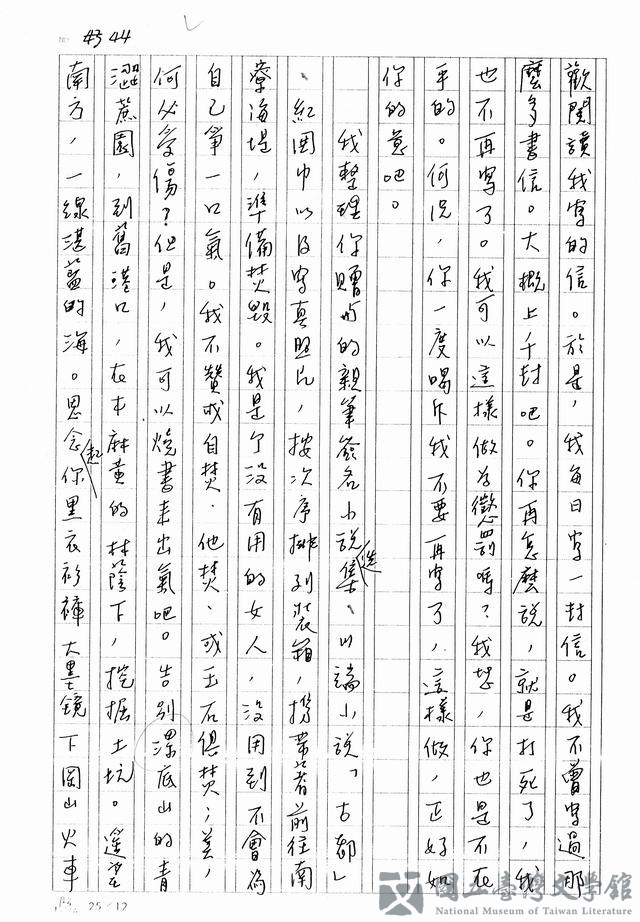 44
歡閱讀我寫的信。於是，我每日寫一封信。我不曾寫過那
麼多書信。大概上千封吧。你再怎麼說，就是打死了，我
也不再寫了。我可以這樣做為懲罰嗎？我想，你也是不在
乎的。何況，你一度喝斥我不要再寫了，這樣做，正好如
你的意吧。
我整理你贈与的親筆簽名小說選集、川端小說「古都」
、紅圍巾以及寫真照片，按次序排列裝箱，攜帶著前往南
寮海堤，準備焚毀。我是個沒有用的女人，沒用到不會為
自己爭一口氣。我不贊成自焚、他焚、或玉石俱焚；美，
何必受傷？但是，我可以燒書來出氣吧。告別漯底山的青
澀蔗園，到舊港口，在木麻黃的林蔭下，挖掘土坑。遙望
南方，一線湛藍的海。思念起你黑衣衫褲大墨鏡下岡山火車
25×12
國立臺灣文學館
National Museum of Taiwan Literature